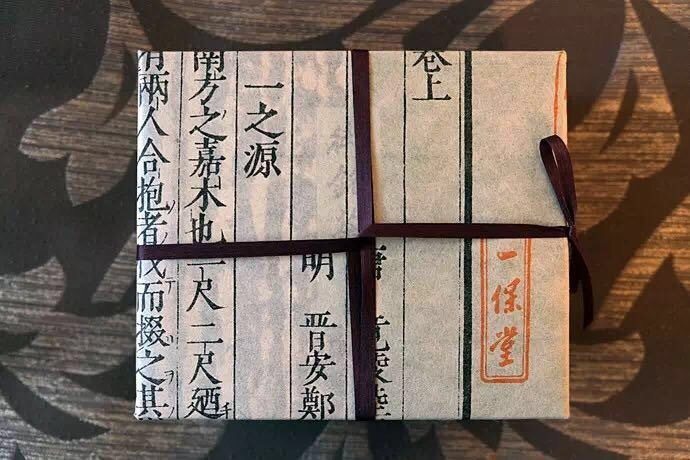 一保堂
卷上
唐 竟陵陸
明 晋安鄭
一之源
南方之嘉木也一尺二尺廼
有兩人合抱者伐而掇之其